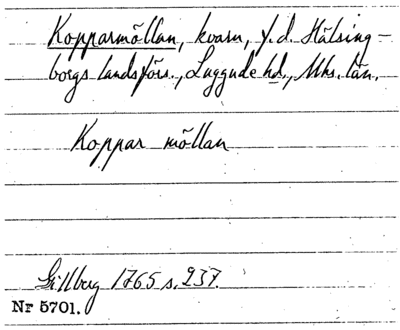 Kopparmöllan, kvarn, f.d. Hälsing-
borgs landsförs., Luggude hd., Mhs. län.
Koppar möllan
Gillberg 1765 s. 237.
Nr 5701.